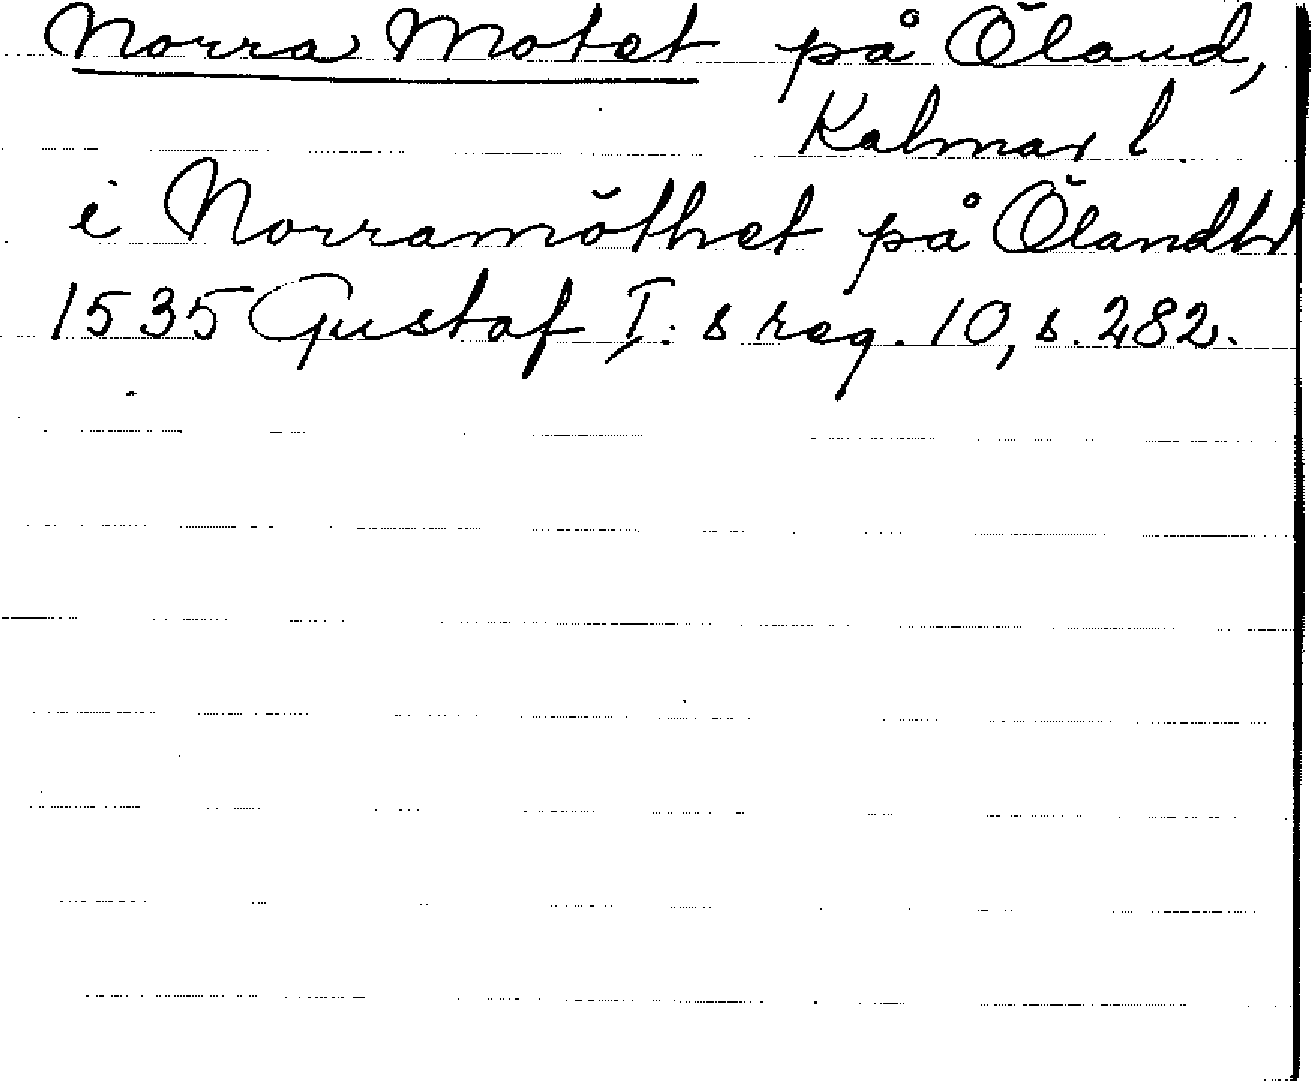 Norra Motet på Öland,
Kalmar l.
i Norramöthet på Ölandh
1535 Gustaf I:s reg. 10, s. 282.